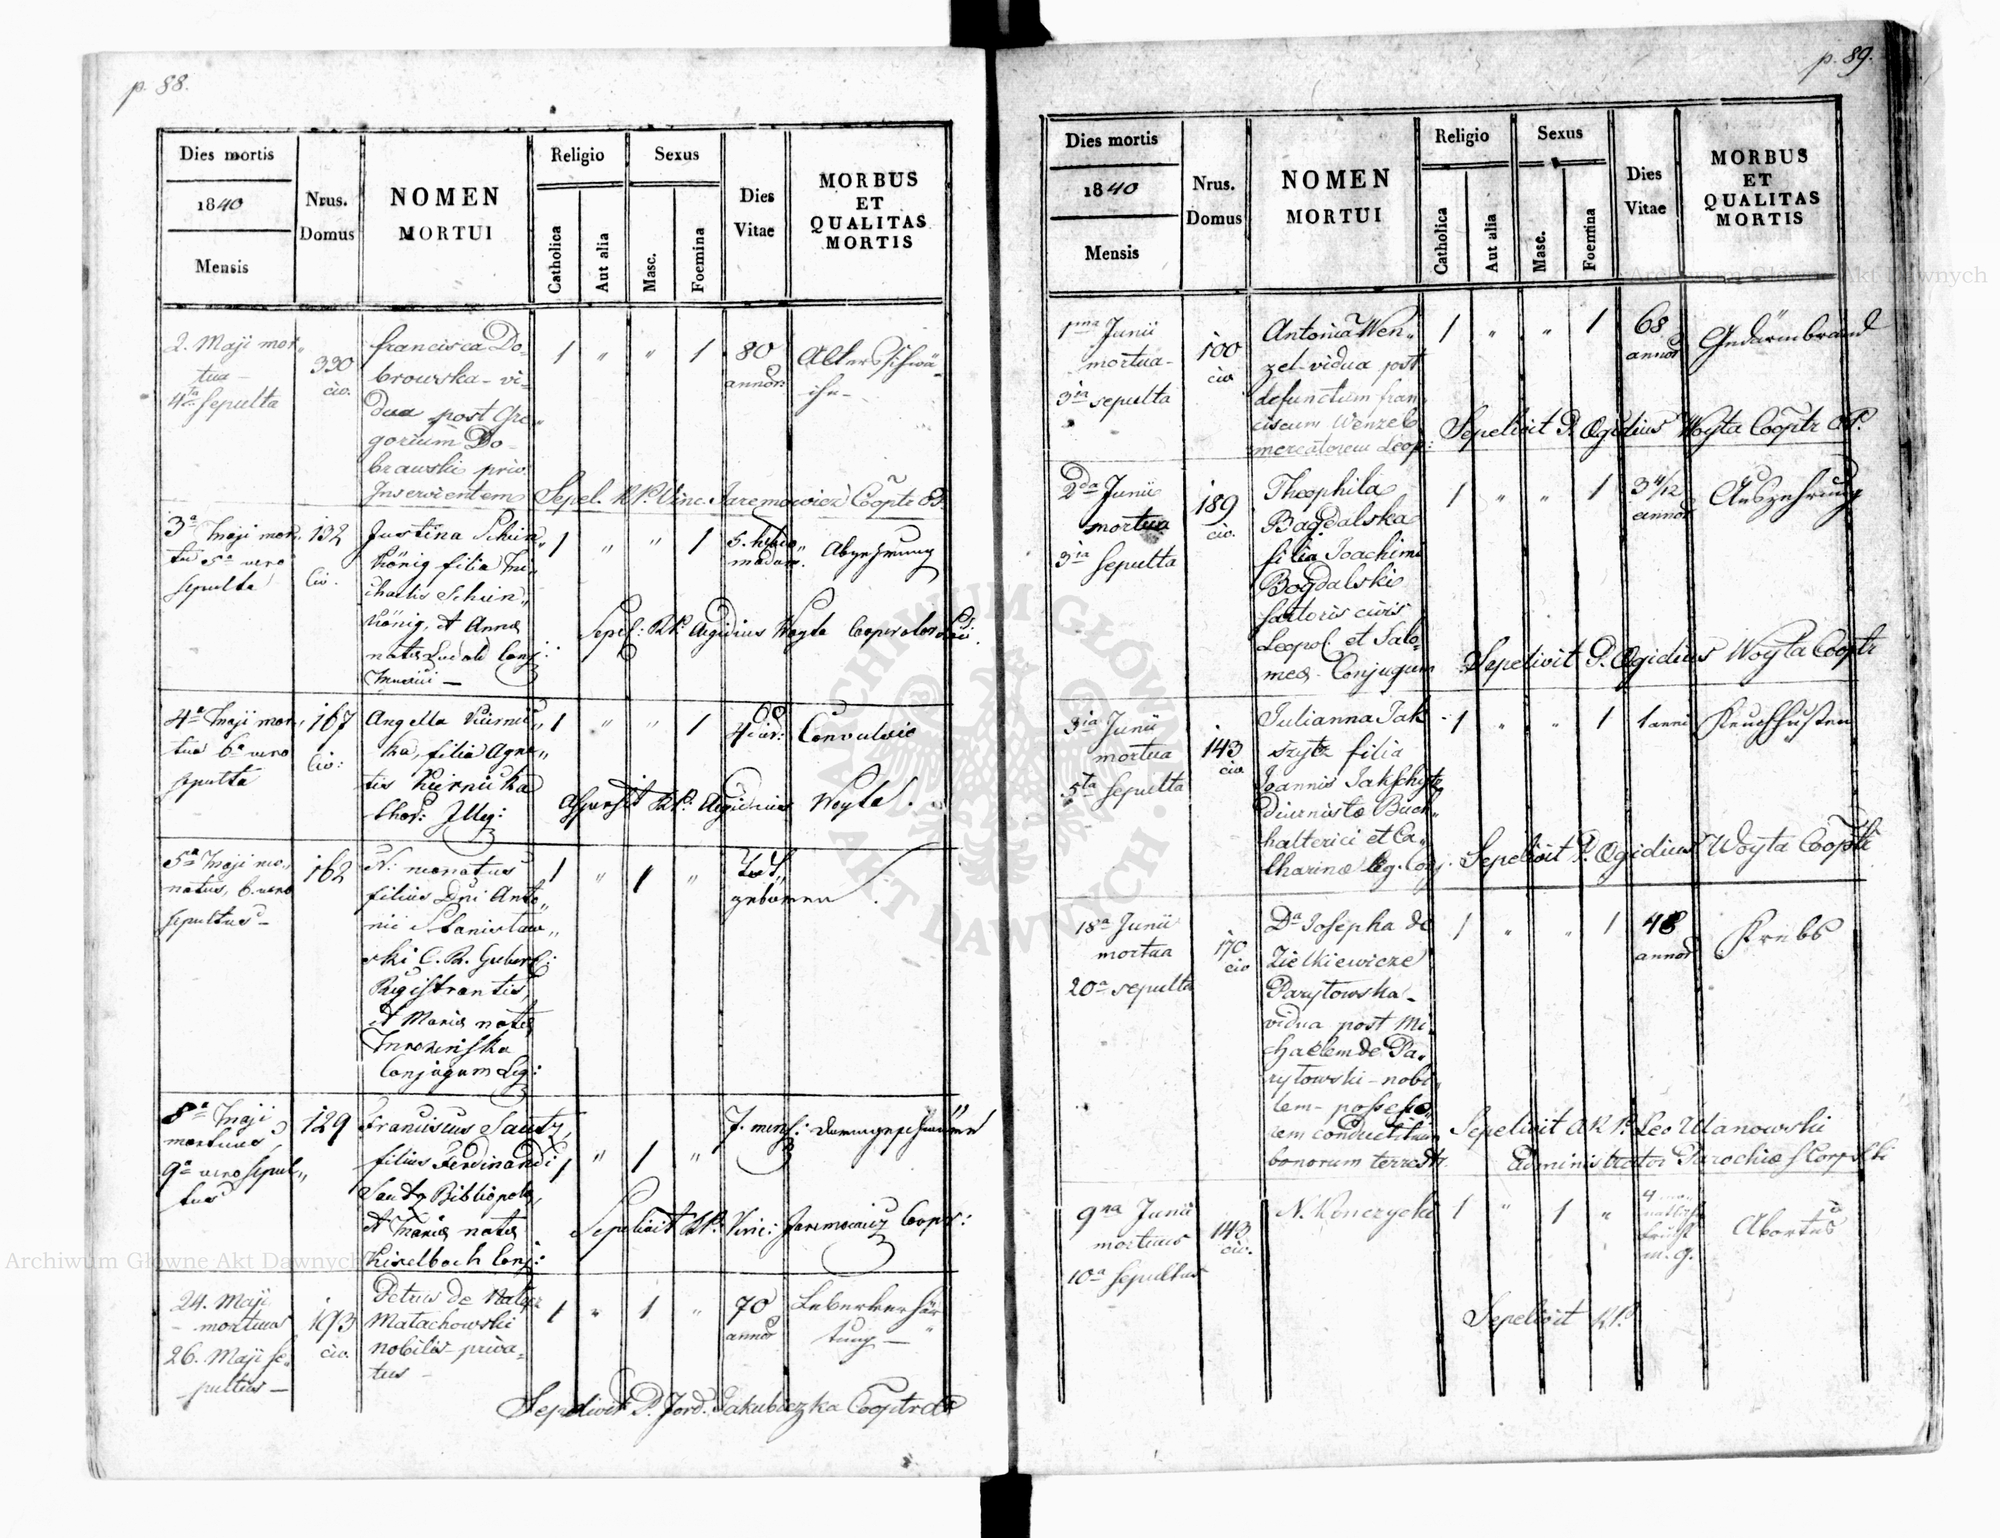 p. 88.
Dies mortis
1840
Mensis
Nrus.
Domus
NOMEN
MORTUI
Religio
Catholica
Aut alia
Sexus
Masc.
Foemina
Dies
Vitae
MORBUS
ET
QUALITAS
MORTIS
2. Maji mor„
tua –
4ta sepulta
330
civ.
Francisca Do-
browska – vi-
dua post Gre-
gorium Do-
browski priv.
Inservientem
1 „ „ 1
80
annor.
Altersschwä-
che –
Sepel. R.P. Vinc. Jaremowicz Cooptr
3a Maji mor„
tua 5a vero
sepulta
132
civ.
Justina Schein„
könig filia Mi„
chaelis Schein„
könig, et Anna
nata Conj:
1 „ „ 1
5. hebdo„
madar.
Abzehrung
Sepel: R.P. Aegidius Woyta Cooperator
4a Maji mor„
tua 6a vero
sepulta
167
civ:
Angella Kiernic„
ka, filia Agne„
tis Kiernicka
Illeg:
1 „ „ 1
Convulsio
Aspersit R.P. Aegidius Woyta.
5a Maji mo„
natus, 6. vero
sepultus –
162
N:
filius Dni Anto„
nii Stanislaw„
ski C. R. Gubern:
Registrantis,
et Maria nata
Conjugum Leg:
1 „ 1 „
Todt„
geboren
8a Maji
mortuus,
9a vero sepul„
tus
129
Franciscus Sautz,
filius Ferdinandi
Sautz Bibliopola,
et Maria nata
Kiselbach Conj:
1 „ 1 „
7. mens:
Sepelivit R.P. Vinc: Jaremowicz Coopr:
24. Maji
– mortuus
26. Maji se„
– pultus –
193
civ.
Petrus de
Malachowski
nobilis priva„
tus –
1 „ 1 „
70
annor
Leberverhär„
tung –
Sepelivit P. Ford. Jakubiczka Cooptr
p. 89.
Dies mortis
1840
Mensis
Nrus.
Domus
NOMEN
MORTUI
Religio
Catholica
Aut alia
Sexus
Masc.
Foemina
Dies
Vitae
MORBUS
ET
QUALITAS
MORTIS
1ma Junii
mortua –
3ia sepulta
100
civ.
Antonia Wen„
zel vidua post
defunctum Fran„
ciscum Wenzel
mercatorem Leop:
1 „ „ 1
68
annor
Gedärmbrand
Sepelivit P. Egidius Woyta Cooptr
2da Junii
mortua
3ia sepulta
189
civ.
Theophila
Bogdalska
filia Joachimi
Bogdalski
sartoris civis
Leopol. et Salo„
mea Conjugum
1 „ „ 1
3 4/12
annor
Auszehrung
Sepelivit P. Egidius Woyta Cooptr
3ia Junii
mortua
5ta sepulta
143
civ.
Julianna Jak
szytz filia
Joannis Jakschytz
diurnista Buch„
halterici et Ca„
tharina leg. Conj.
1 „ „ 1
1 anni
Keuchhusten
Sepelivit P. Egidius Woyta Cooptr
18a Junii
mortua
20a sepulta
170
civ
Da Josepha de
Zielkiewicze
Parytowska –
vidua post Mi„
chaelem de Pa„
rytowski – nobi„
lem – possesso„
rem conductitium
bonorum terrestr.
1 „ „ 1
48
annor
Krebs
Sepelivit A R P. Leo Ulanowski
Administrator Parochiae
9na Junii
mortuus
10a sepultus
143
civ.
N. Konczycki
1 „ 1 „
Abortus
Sepelivit R.P.
Archiwum Główne Akt Dawnych
Archiwum Główne Akt Dawnych
ARCHIWUM GŁÓWNE
AKT DAWNYCH